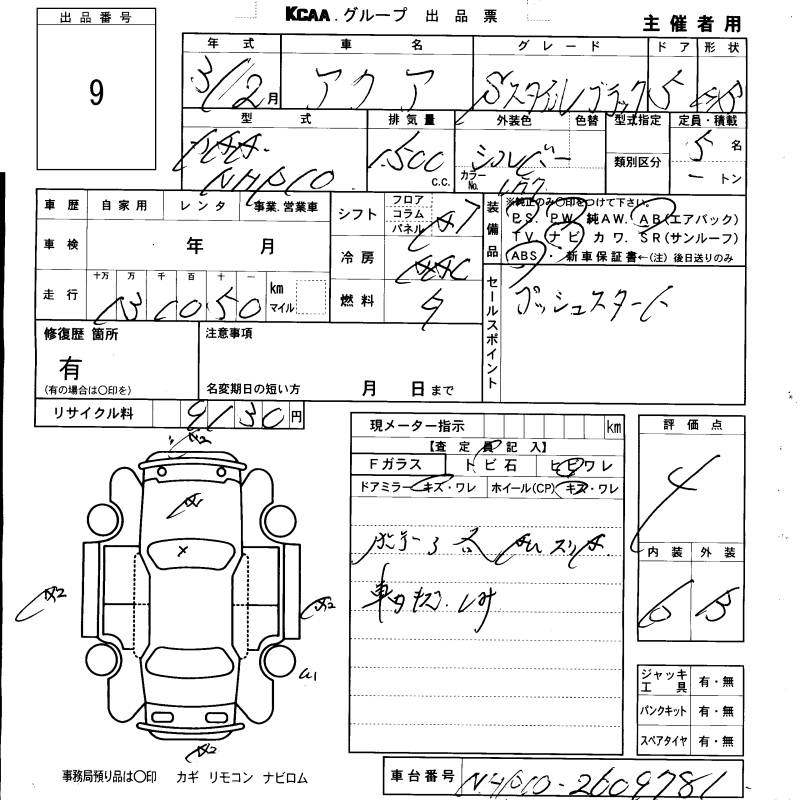 KCAA.グループ 出品票
主催者用
出品番号
9
年式 車名 グレード ドア 形状
3/12月 アクア Sスタイルブラック 5
型式 排気量 外装色 色替 型式指定 定員・積載
NHP10 1500 c.c. シルバー 5名
カラーNo. 1F7 類別区分 ー トン
車歴 自家用 レンタ 事業.営業車
車検 年 月
走行 十万 万 千 百 十 一 km マイル
シフト フロア コラム パネル
冷房
燃料
装備品
※純正のみ〇印をつけて下さい。
P.S. P.W. 純AW. AB(エアバック)
TV. ナビ カワ. SR(サンルーフ)
ABS・ 新車保証書←(注) 後日送りのみ
セールスポイント
プッシュスタート
修復歴 箇所
有
(有の場合は〇印を)
注意事項
名変期日の短い方 月 日まで
リサイクル料 9130円
現メーター指示 km
【査定員記入】
Fガラス トビ石 ヒビワレ
ドアミラー キズ・ワレ ホイール(CP) キズ・ワレ
評価点
4
内装 外装
ジャッキ工具 有・無
パンクキット 有・無
スペアタイヤ 有・無
事務局預り品は〇印 カギ リモコン ナビロム
車台番号 NHP10-2609781